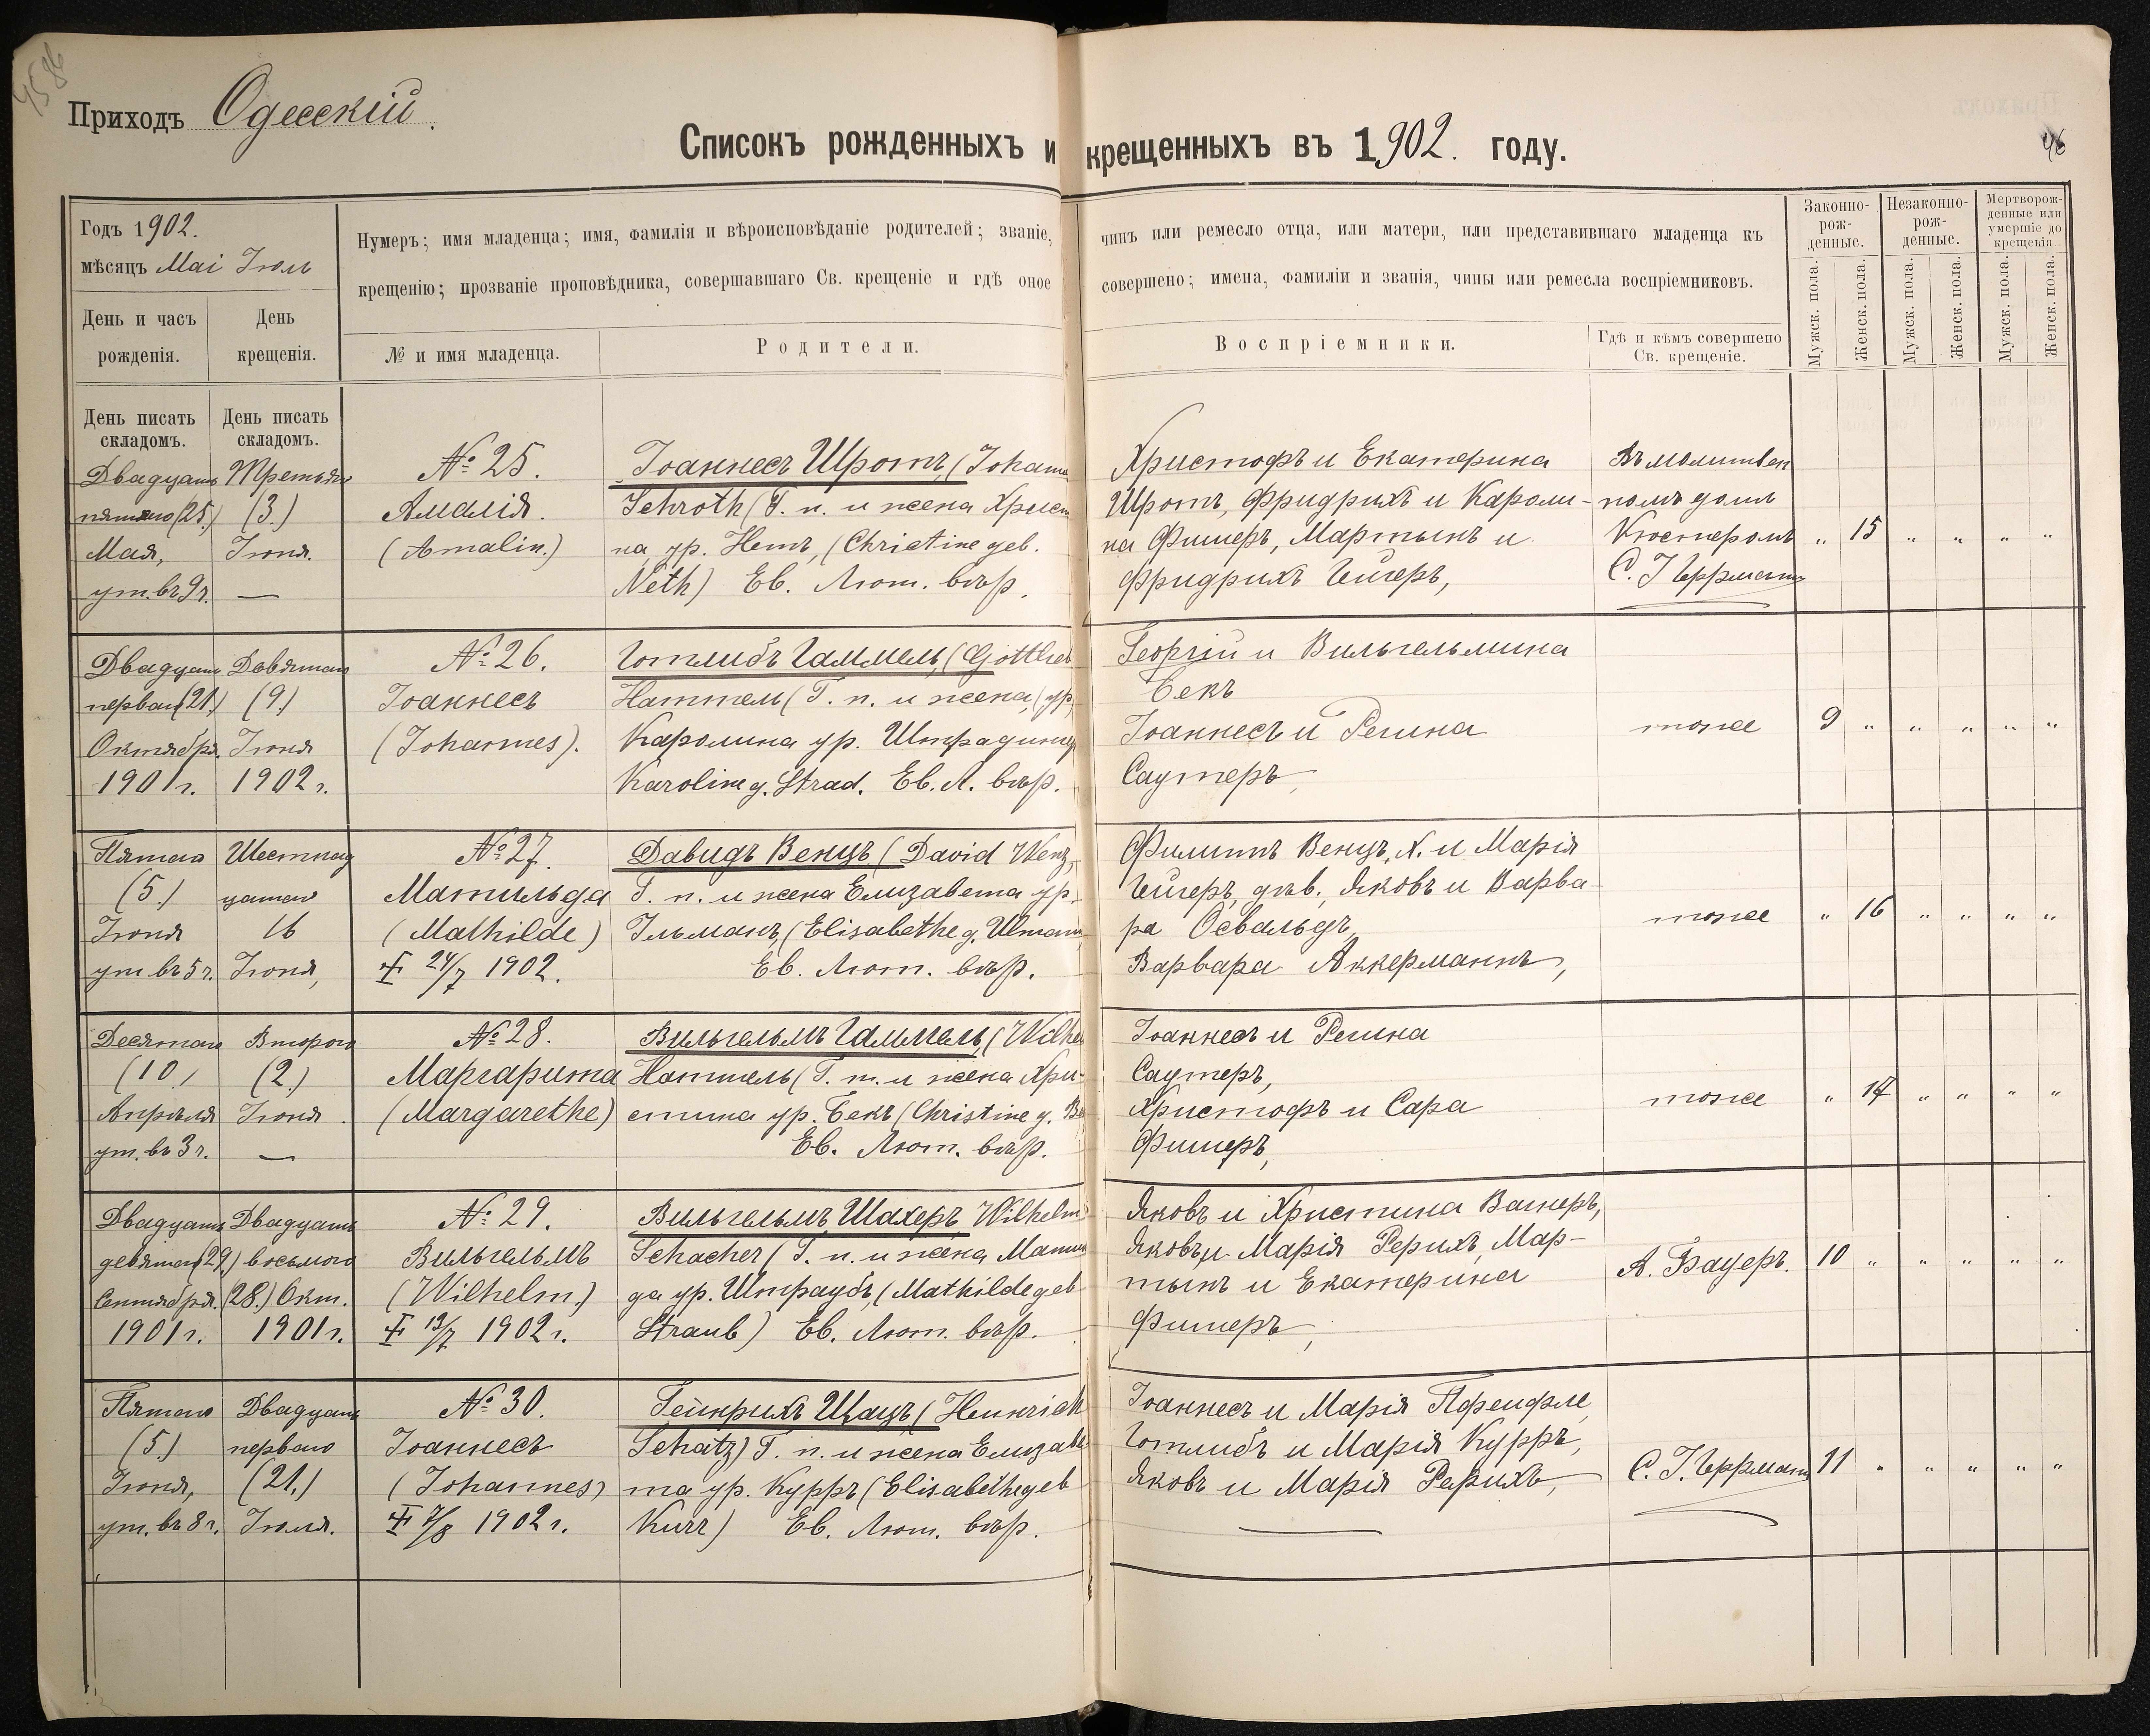 4586
Приходъ Одесскій.
Списокъ рожденныхъ и крещенныхъ въ 1902. году.
46
Годъ 1902.
мѣсяцъ Маі Іюль
День и часъ рожденія.
День крещенія.
Нумеръ; имя младенца; имя, фамилія и вѣроисповѣданіе родителей; званіе, чинъ или ремесло отца, или матери, или представившаго младенца къ
крещенію; прозваніе проповѣдника, совершавшаго Св. крещеніе и гдѣ оное совершено; имена, фамиліи и званія, чины или ремесла воспріемниковъ.
№ и имя младенца.
Родители.
Воспріемники.
Гдѣ и кѣмъ совершено
Св. крещеніе.
Законно-
рож-
денные.
Незаконно-
рож-
денные.
Мертворож-
денные или
умершіе до
крещенія
Мужск. пола.
Женск. пола.
Мужск. пола.
Женск. пола.
Мужск. пола.
Женск. пола.
День писать
складомъ.
День писать
складомъ.
Двадцать
пятаго (25.)
Мая,
ут. въ 9 ч.
Третьяго
(3.)
Іюня.
—
№ 25.
Амалія.
(Amalin.)
Іоаннесъ Шротъ, (Johann
Schroth) Г. п. и жена Христ
на ур. Нетъ, (Christine geb.
Neth) Ев. Лют. вѣр.
Христофъ и Екатерина
Шротъ, Фридрихъ и Кароли-
на Фишеръ, Мартынъ и
Фридрихъ Гейгеръ,
Въ молитвен
номъ домѣ
Кюстеромъ
С. Г. Геррманъ
" 15 " " " "
Двадцать
перваго (21.)
Октября
1901 г.
Девятаго
(9.)
Іюня
1902 г.
№ 26.
Іоаннесъ
(Johannes).
Готлибъ Гаммель, (Gottlieb
Hammel) Г. п. и жена, (ур.
Каролина ур. Штрадинге
Karoline g. Strad. Ев. Л. вѣр.
Георгій и Вильгельмина
Бекъ
Іоаннесъ и Регина
Саутеръ,
тоже
9 " " " " "
Пятаго
(5.)
Іюня
ут въ 5 ч.
Шестнад
цатаго
16
Іюня,
№ 27.
Матильда
(Mathilde)
24/7 1902.
Давидъ Венцъ, (David Wenz,
Г. п. и жена Елизавета ур.
Ильманъ, (Elisabethe g. Ulmann
Ев. Лют. вѣр.
Филиппъ Венцъ, Х. и Марія
Гейгеръ, дѣв., Яковъ и Варва-
ра Освальдъ,
Варвара Аккерманнъ,
тоже
" 16 " " " "
Десятаго
(10)
Апрѣля
ут. въ 3 ч.
Второго
(2.)
Іюня.
—
№ 28.
Маргарита
(Margarethe)
Вильгельмъ Гаммель, (Wilhe
Hammель) Г. п. и жена Хри-
стина ур. Бекъ (Christine g. Be
Ев. Лют. вѣр.
Іоаннесъ и Регина
Саутеръ,
Христофъ и Сара
Фишеръ,
тоже
" 17 " " " "
Двадцать
девятаго (29.)
Сентября.
1901 г.
Двадцать
восьмого
(28.) Окт.
1901 г.
№ 29.
Вильгельмъ
(Wilhelm.)
13/7 1902 г.
Вильгельмъ Шахеръ, Wilhelm
Schacher) Г. п. и жена Матиль
да ур. Штраубъ, (Mathilde geb
Straub) Ев. Лют. вѣр.
Яковъ и Христина Вагнеръ,
Яковъ и Марія Рерихъ, Мар-
тынъ и Екатерина
Фишеръ,
А. Бауеръ.
10 " " " " "
Пятаго
(5.)
Іюня,
ут. въ 8 ч.
Двадцать
перваго
(21.)
Іюля.
№ 30.
Іоаннесъ
(Johannes)
7/8 1902 г.
Гейнрихъ Шацъ, (Heinrich
Schatz) Г. п. и жена Елизаве
та ур. Курръ (Elisabethe geb
Kurr) Ев. Лют. вѣр.
Іоаннесъ и Марія Пфейфле,
Готлибъ и Марія Курръ,
Яковъ и Марія Рерихъ,
С. Г. Геррманъ
11 " " " " "